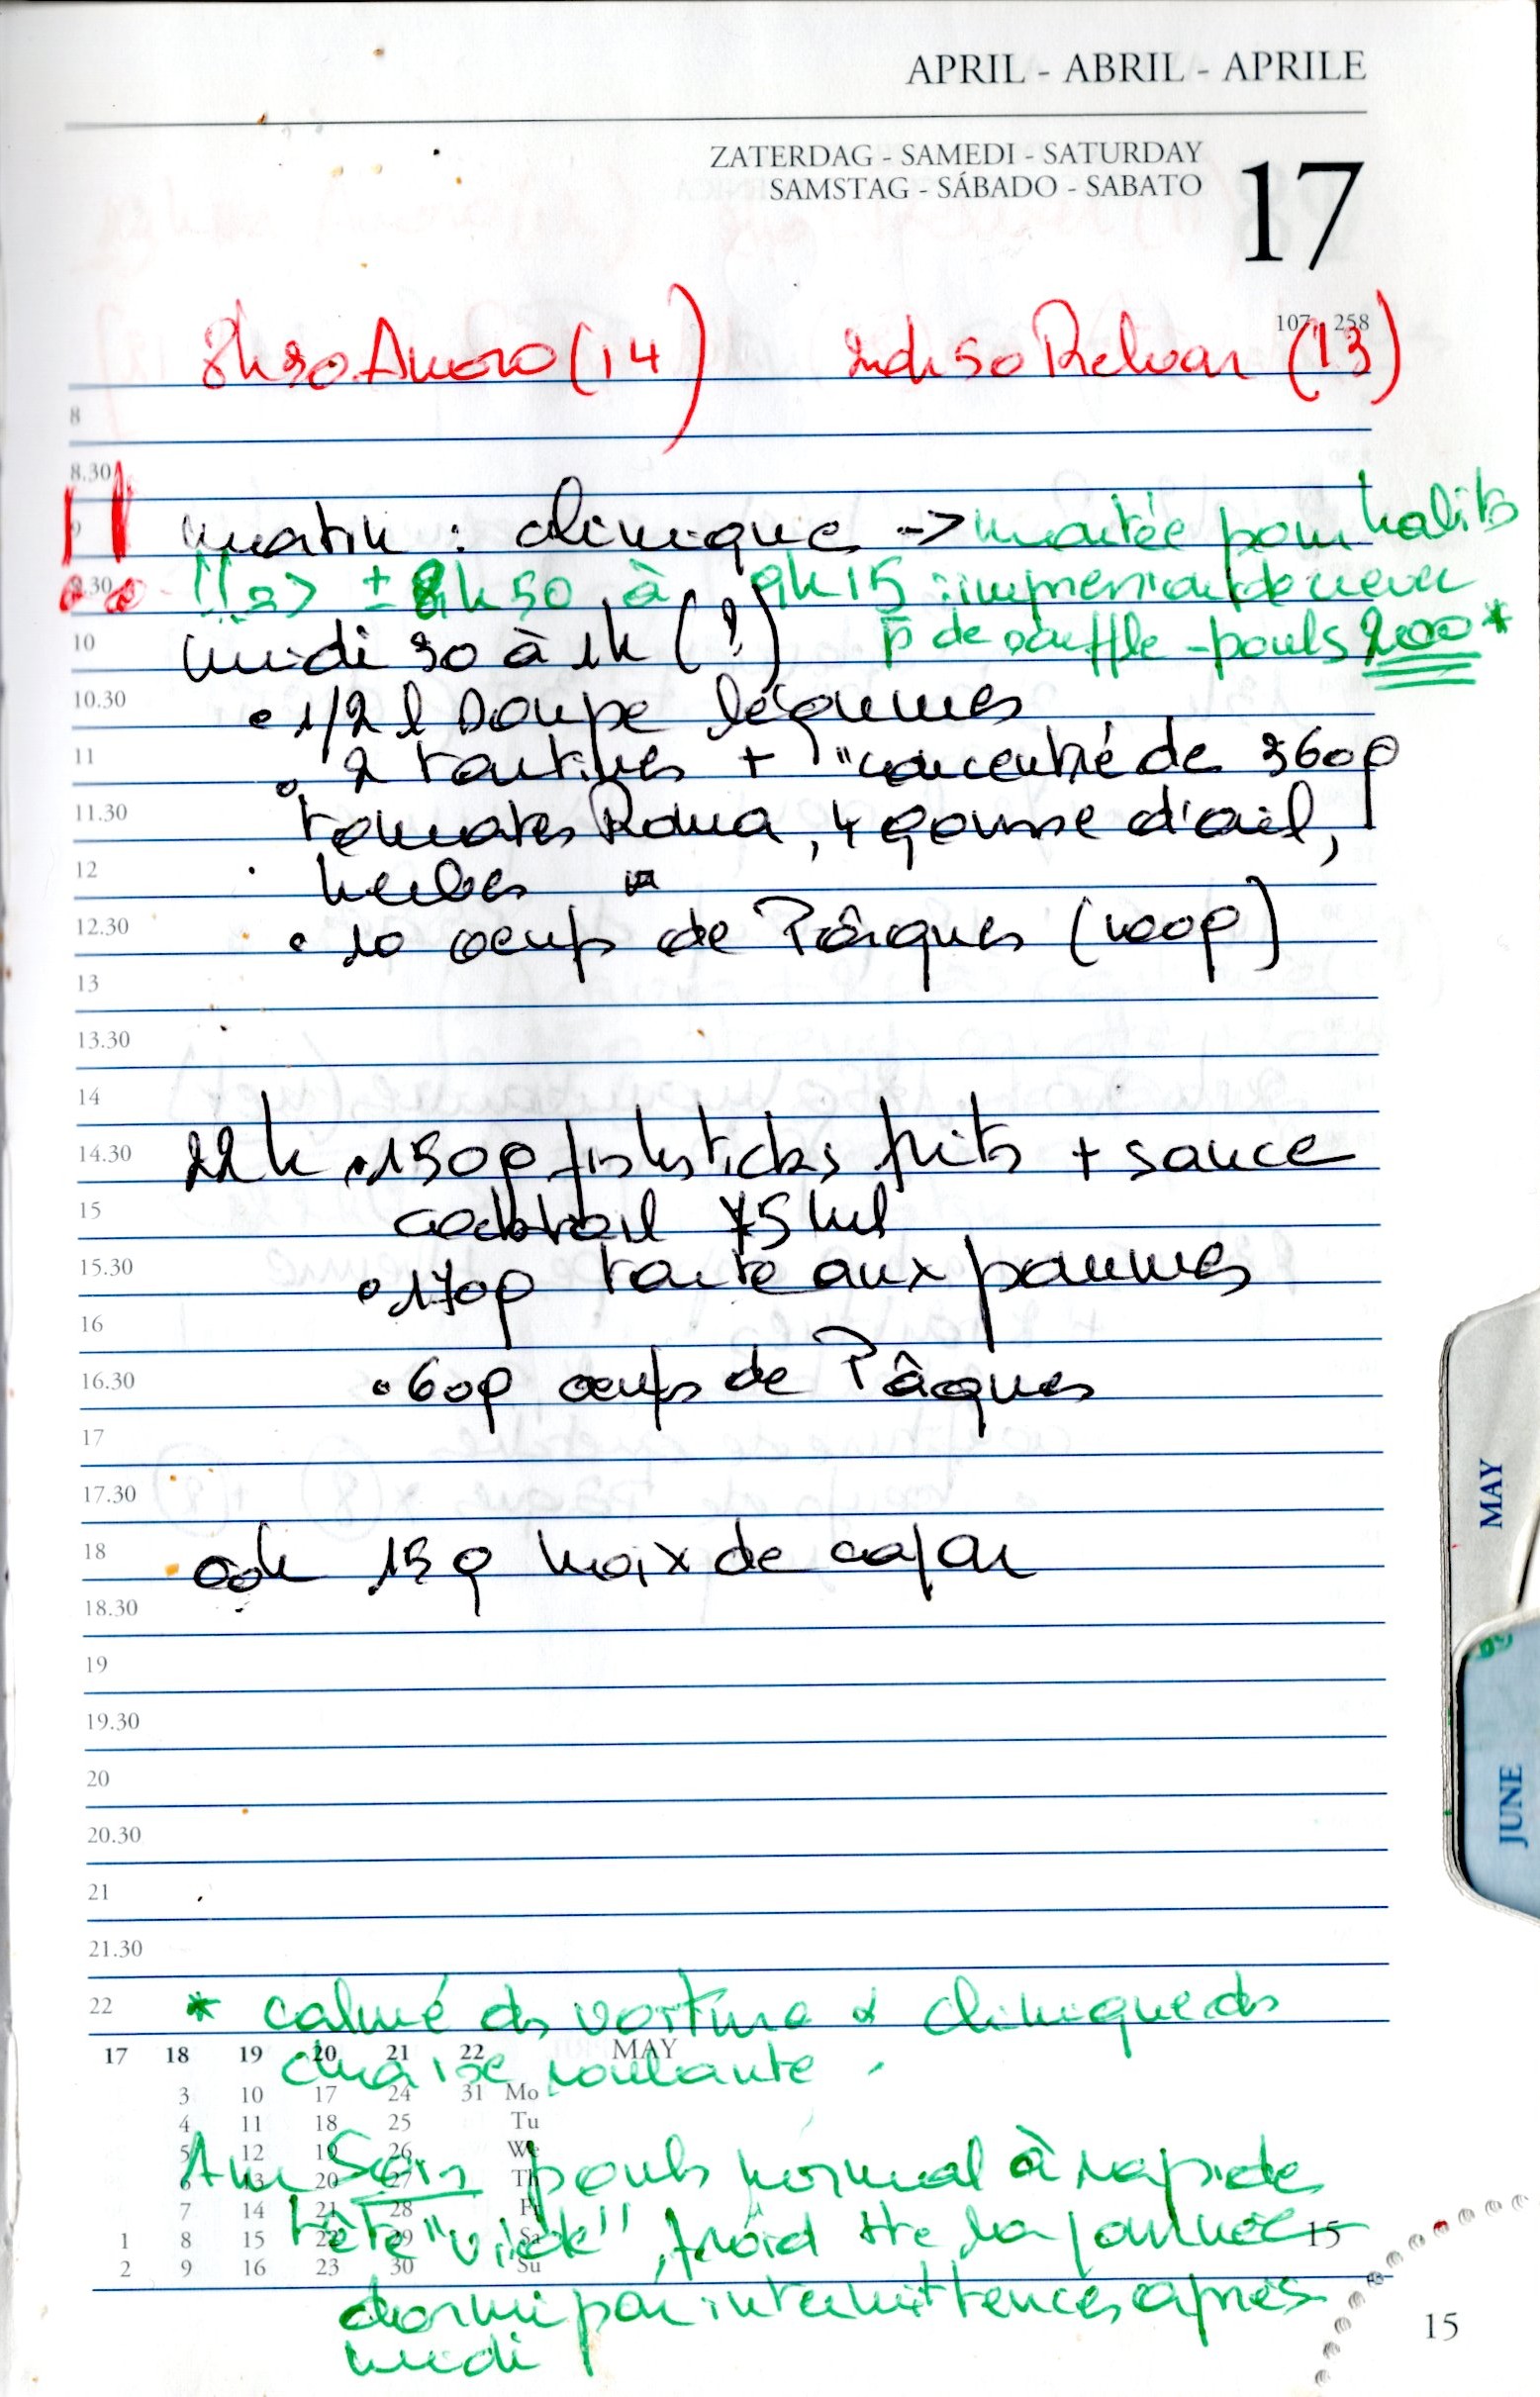 APRIL - ABRIL - APRILE
ZATERDAG - SAMEDI - SATURDAY
SAMSTAG - SÁBADO - SABATO
17
107 258
8h30 (14) Relvar (13)
8
8.30
9 matin : clinique -> montée pour habits
9.30 !! => ± 8h50 à 9h15 : impression de crever
p de souffle - pouls 200 *
10 midi 30 à 1h (?)
10.30 • 1/2 l soupe légumes
11 • 2 tartines + "concentré de 360g
11.30 tomates Roma, 4 gousse d'ail,
12 herbes "
12.30 • 10 oeufs de Pâques (100g)
13
13.30
14
14.30 22h • 150g fishsticks frits + sauce
15 cocktail 75 ml
15.30 • 170g tarte aux pommes
16
16.30 • 60g oeufs de Pâques
17
17.30
18 00h 15 g noix de cajou
18.30
19
19.30
20
20.30
21
21.30
22 * calmé ds voiture & clinique ds
chaise roulante.
17 18 19 20 21 22 MAY
3 10 17 24 31 Mo
4 11 18 25 Tu
5 12 19 26 We
6 13 20 27 Th
7 14 21 28 Fr
1 8 15 22 29 Sa
2 9 16 23 30 Su
Au Soir pouls normal à rapide
tête "vide", froid tte la journée
dormi par intermittences après
midi
15
15
MAY
JUNE